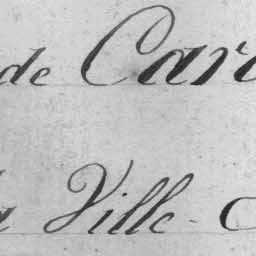 de Car
Ville-